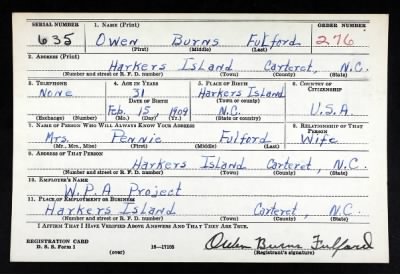 SERIAL NUMBER 1. NAME (Print) ORDER NUMBER
635 Owen Burns Fulford 276
(First) (Middle) (Last)
2. ADDRESS (Print)
Harkers Island Carteret, N.C.
(Number and street or R. F. D. number) (Town) (County) (State)
3. TELEPHONE 4. AGE IN YEARS 5. PLACE OF BIRTH 6. COUNTRY OF CITIZENSHIP
None 31 Harkers Island
DATE OF BIRTH (Town or county)
Feb. 15 1909 N.C. U.S.A.
(Exchange) (Number) (Mo.) (Day) (Yr.) (State or country)
7. NAME OF PERSON WHO WILL ALWAYS KNOW YOUR ADDRESS 8. RELATIONSHIP OF THAT PERSON
Mrs. Pennie Fulford Wife
(Mr., Mrs., Miss) (First) (Middle) (Last)
9. ADDRESS OF THAT PERSON
Harkers Island Carteret, N.C.
(Number and street or R. F. D. number) (Town) (County) (State)
10. EMPLOYER'S NAME
W.P.A Project
11. PLACE OF EMPLOYMENT OR BUSINESS
Harkers Island Carteret, N.C.
(Number and street or R. F. D. number) (Town) (County) (State)
I AFFIRM THAT I HAVE VERIFIED ABOVE ANSWERS AND THAT THEY ARE TRUE.
REGISTRATION CARD
D. S. S. Form 1 16—17105 Owen Burns Fulford
(over) (Registrant's signature)